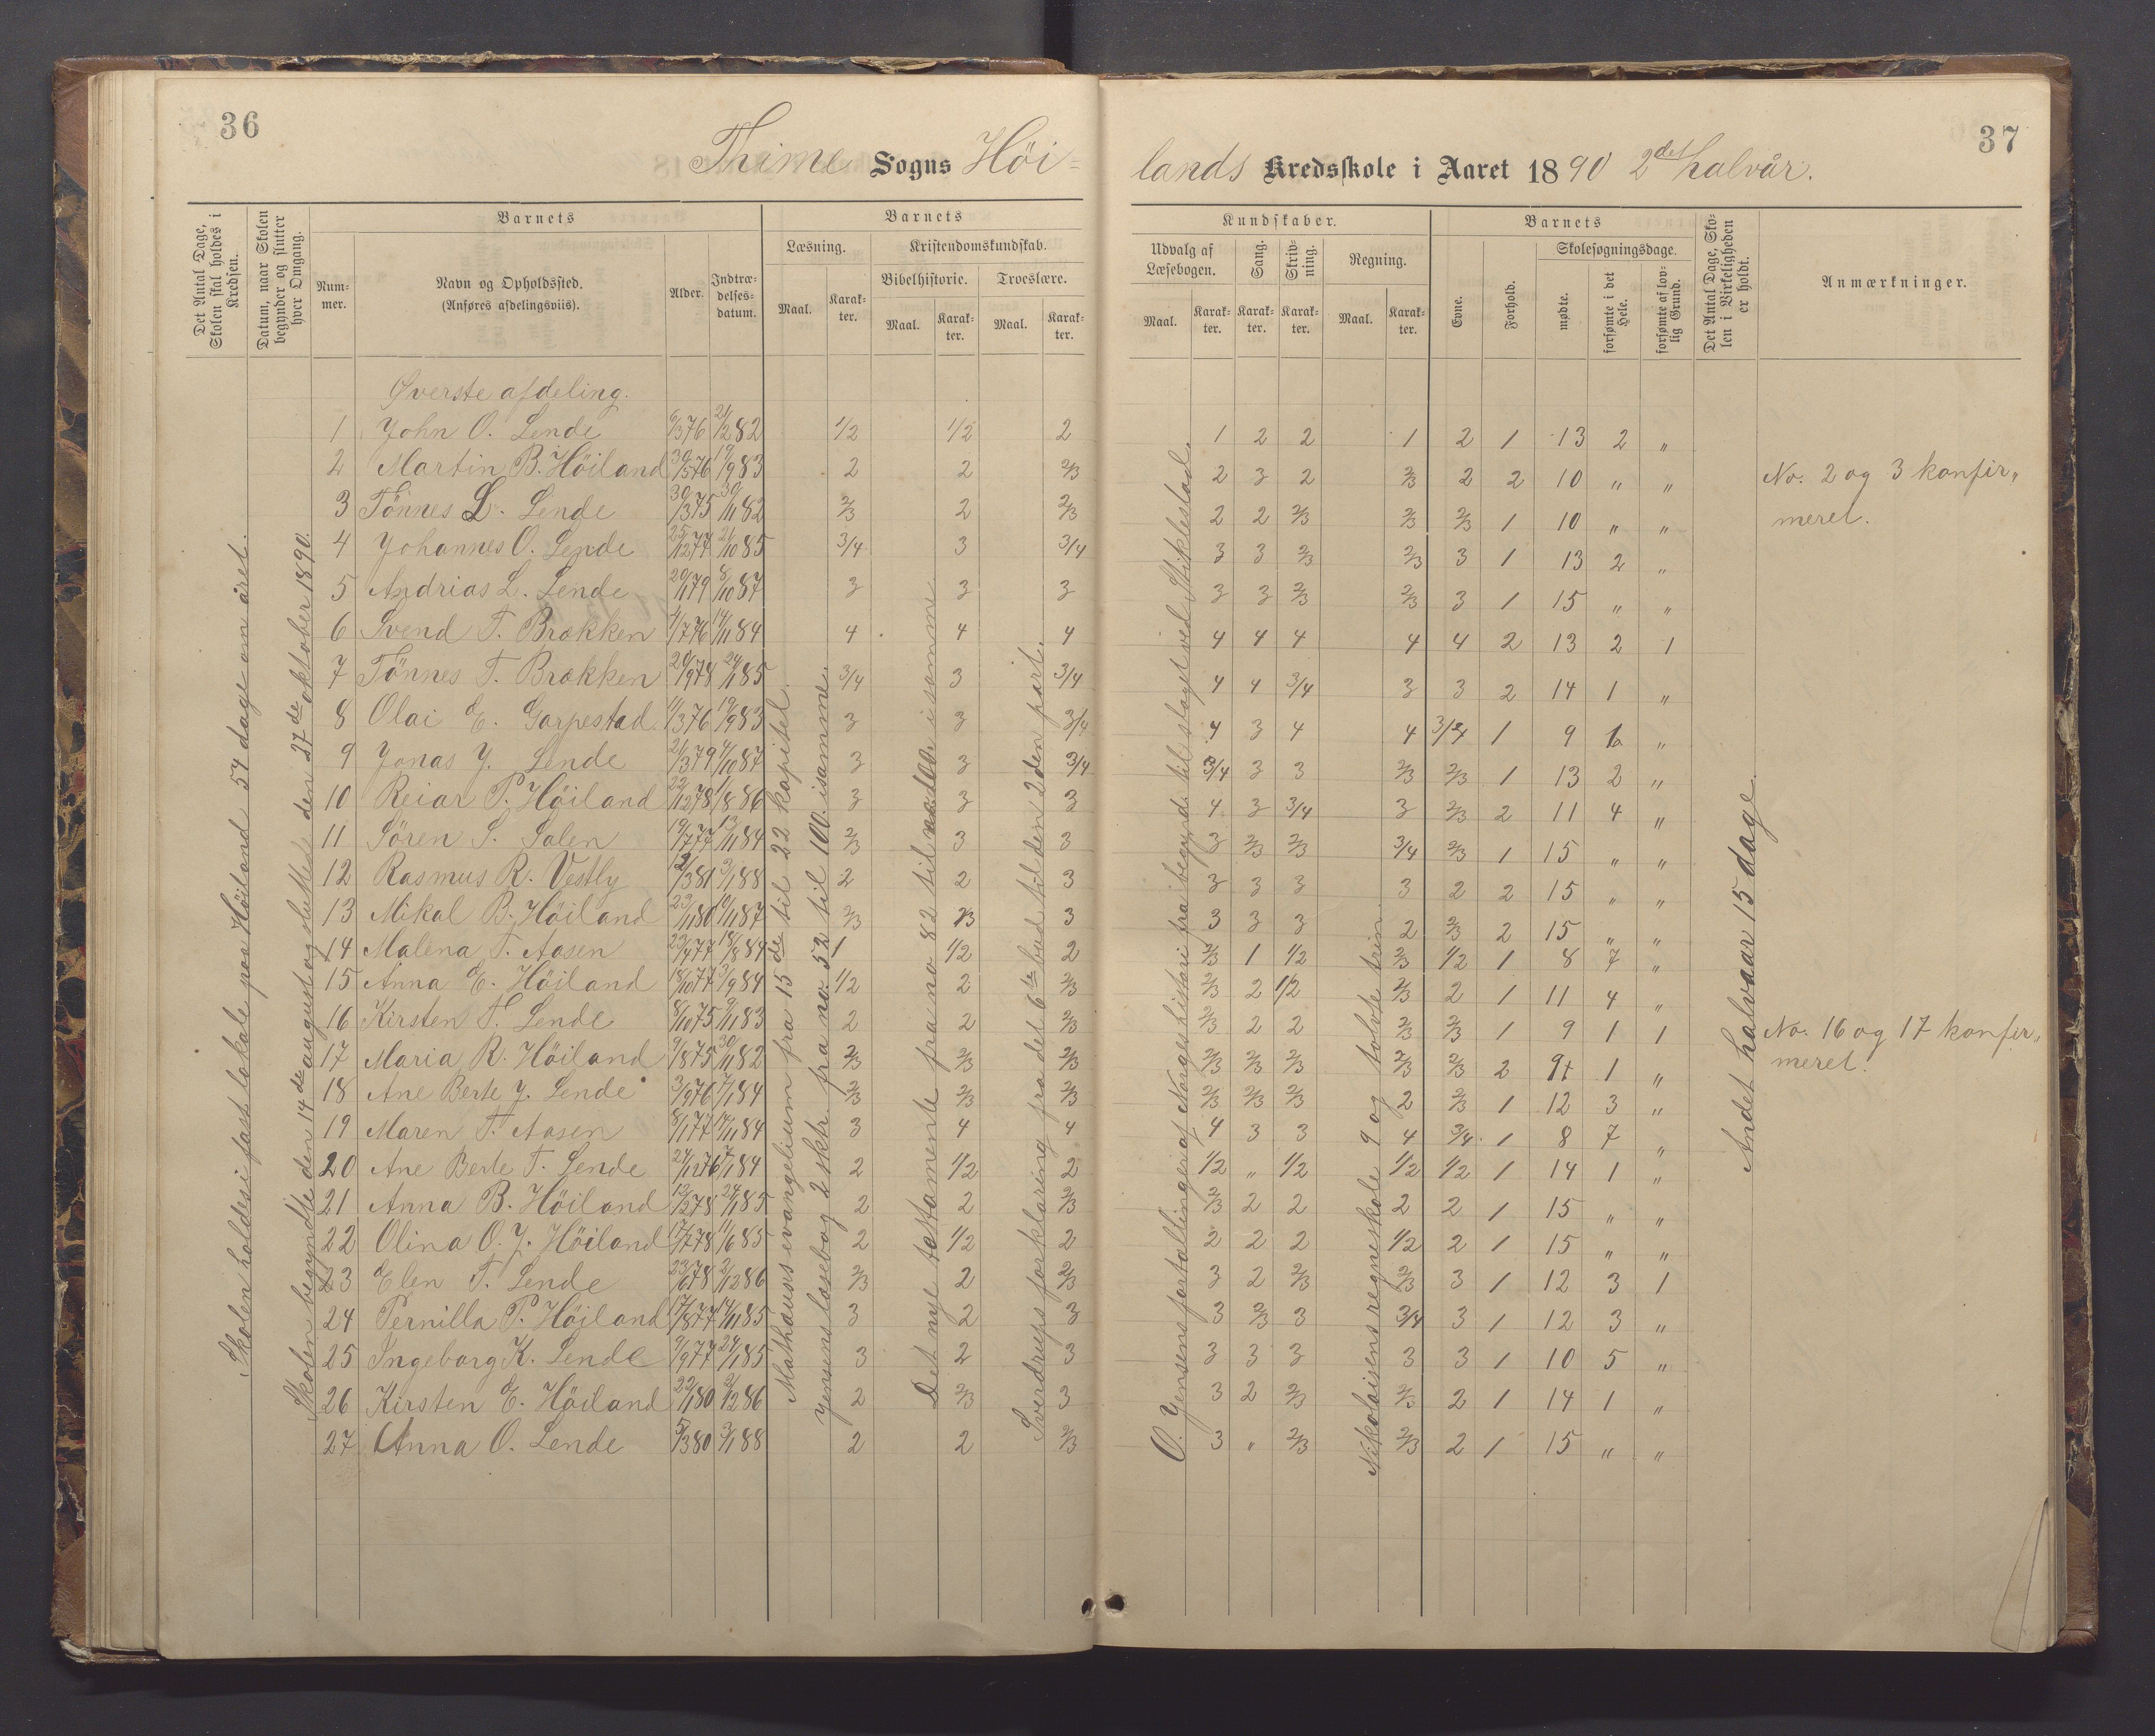 36
Thime Sogns Höi-
Det Antal Dage, Skolen skal holdes i Kredsen.
Datum, naar Skolen begynder og slutter hver Omgang.
Barnets
Num-mer.
Navn og Opholdssted. (Anføres afdelingsviis).
Alder.
Indtræ-delses-datum.
Barnets
Læsning.
Kristendomskundskab.
Bibelhistorie.
Troeslære.
Maal.
Karak-ter.
Maal.
Karak-ter.
Maal.
Karak-ter.
Skolen holdes i fast lokale paa Höiland 54 dage om året.
Skolen begyndte den 14de august og sluttede den 27de oktober 1890.
Mathæus evangelium fra 15de til 22 kapitel.
Jensens læsebog 2 sktr. fra no. 52 til 100 isamme.
Det nye testamente fra no 82 til isamme
Sverdrups forklaring fra det 6te bud til den 2den part.
Øverste afdeling.
1 John O. Lende 6/3 76 21/12 82 1/2 1/2 2
2 Martin B. Höiland 30/5 76 17/9 83 2 2 2/3
3 Tönnes L. Lende 30/3 75 30/11 82 2/3 2 2/3
4 Johannes O. Lende 25/12 77 21/10 85 3/4 3 3/4
5 Andrias L. Lende 20/1 79 8/10 87 3 3 3
6 Svend T. Brækken 4/7 76 14/11 84 4 4 4
7 Tönnes T. Brækken 20/9 78 24/1 85 3/4 3 3/4
8 Olai E. Garpestad 11/3 76 17/9 83 3 3 3/4
9 Jonas J. Lende 21/3 79 4/10 87 3 3 3/4
10 Reiar P. Höiland 22/12 78 1/8 86 3 3 3
11 Sören S. Salen 19/7 77 13/11 84 2/3 3 3
12 Rasmus R. Vestly 12/3 81 3/1 88 2 2 3
13 Mikal B. Höiland 23/11 80 10/11 87 2/3 2/3 3
14 Malena T. Aasen 23/4 77 18/8 84 1 1/2 2
15 Anna E. Höiland 18/10 77 3/9 84 1/2 2 2/3
16 Kirsten T. Lende 8/10 75 9/11 83 2 2 2/3
17 Maria R. Höiland 9/8 75 30/11 82 2/3 2/3 2/3
18 Ane Berte J. Lende 3/9 76 7/1 84 2/3 2/3 2/3
19 Maren T. Aasen 8/1 77 14/11 84 3 4 4
20 Ane Berte T. Lende 24/12 76 7/1 84 2 1/2 2
21 Anna B. Höiland 12/2 78 24/1 85 2 2 2/3
22 Olina O. J. Höiland 17/7 78 11/6 85 2 1/2 2
23 Elen T. Lende 23/6 78 2/12 86 2/3 2 2/3
24 Pernilla P. Höiland 17/8 77 14/11 85 3 2 3
25 Ingeborg K. Lende 9/9 77 24/1 85 3 2 3
26 Kirsten E. Höiland 22/1 80 2/12 86 2 2/3 3
27 Anna O. Lende 5/3 80 3/1 88 2 2 2/3
37
lands Kredsskole i Aaret 1890 2det halvår.
Kundskaber.
Udvalg af Læsebogen.
Sang.
Skriv-ning.
Regning.
Maal.
Karak-ter.
Karak-ter.
Karak-ter.
Maal.
Karak-ter.
Barnets
Evne.
Forhold.
Skolesøgningsdage.
mødte.
forsømte i det Hele.
forsømte af lov-lig Grund.
Det Antal Dage, Sko-len i Virkeligheden er holdt.
Anmærkninger.
O. Jensens fortællinger af Norges historie fra begynd. til slaget ved Stiklestad.
Nikolaisens regneskole 9 og tolvte trin.
Andet halvaar 15 dage.
1 2 2 1 2 1 13 2 "
2 3 2 2/3 2 2 10 " "
2 2 2/3 2/3 2/3 1 10 " "
3 3 2/3 2/3 3 1 13 2 "
3 3 2/3 2/3 3 1 15 " "
4 4 4 4 4 2 13 2 1
4 4 3/4 3 3 2 14 1 "
4 3 4 4 3/4 1 9 "
3/4 3 3 2/3 2/3 1 13 2 "
4 3 3/4 3 2/3 2 11 4 "
3 2/3 2/3 3/4 2/3 1 15 " "
3 3 3 3 2 2 15 " "
3 3 3 2 2/3 2 15 " "
2/3 1 1/2 2/3 1/2 1 8 7 "
2/3 2 1/2 2/3 2 1 11 4 "
2/3 2 2 2/3 2/3 1 9 1 1
2/3 2/3 2/3 2/3 2/3 2 9 1 "
2/3 2/3 2/3 2 2/3 1 12 3 "
4 3 3 4 3/4 1 8 7 "
1/2 " 1/2 1/2 1/2 1 14 1 "
2/3 2 2 2 2 1 15 " "
2 2 2 1/2 2 1 15 " "
3 2 2/3 2/3 3 1 12 3 1
3 2/3 3 3/4 3 1 12 3 "
3 3 3 3 3 1 10 5 "
3 2 2/3 2/3 2 1 14 1 "
3 " 2/3 2/3 2 1 15 " "
No. 2 og 3 konfir„
meret.
No. 16 og 17 konfir„
meret.